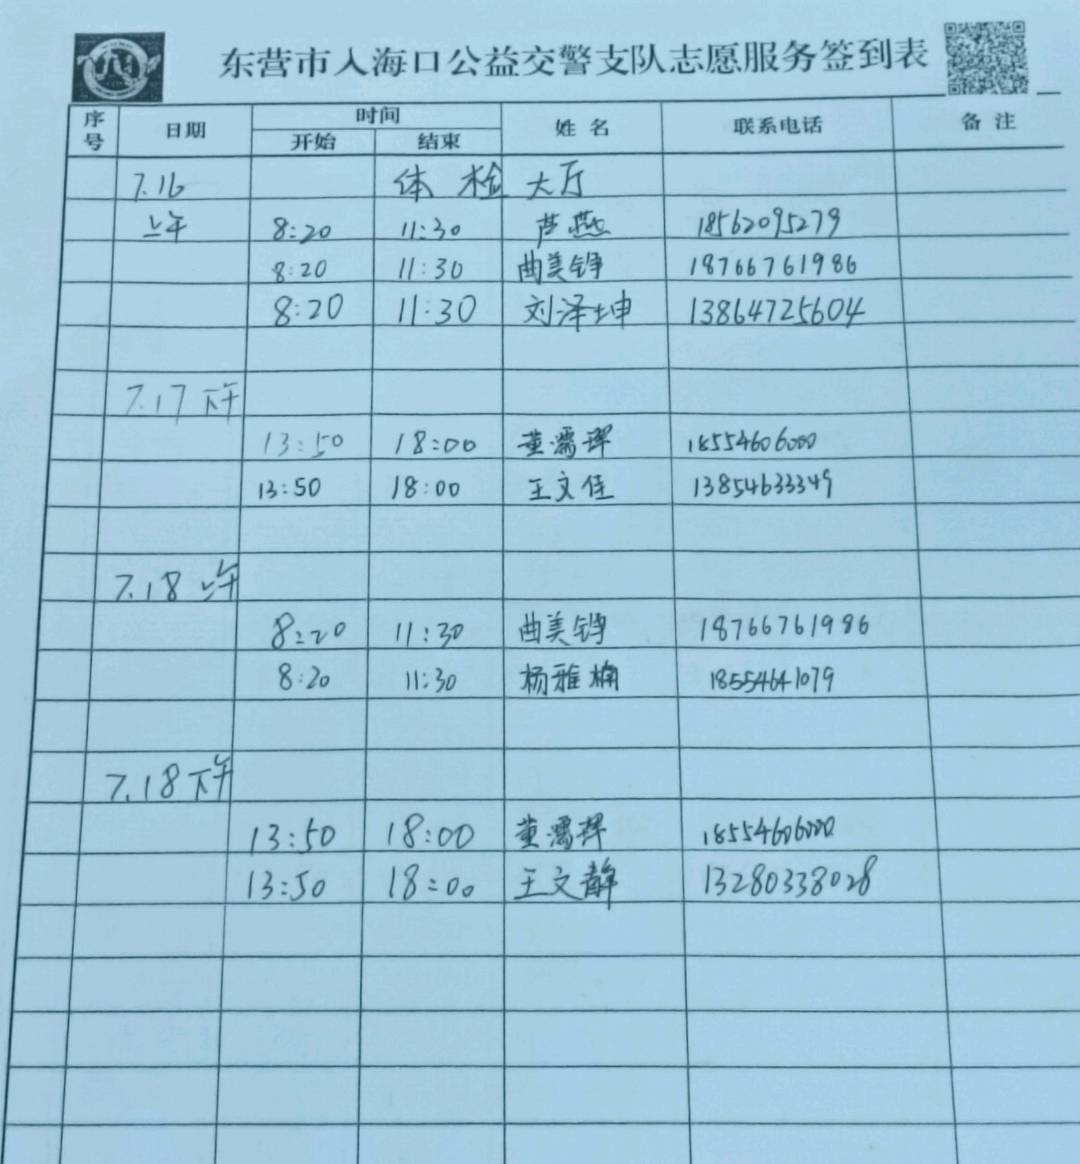 东营市入海口公益交警支队志愿服务签到表
序号 日期 时间 开始 结束 姓名 联系电话 备注
7.16 体检大厅
上午 8:20 11:30 芦燕 18562095279
8:20 11:30 曲美铮 18766761986
8:20 11:30 刘泽坤 13864725604
7.17 下午
13:50 18:00 董霭琿 18554606000
13:50 18:00 王文佳 13854633349
7.18 上午
8:20 11:30 曲美铮 18766761986
8:20 11:30 杨雅楠 18554641079
7.18 下午
13:50 18:00 董 18554606000
13:50 18:00 王文静 13280338028